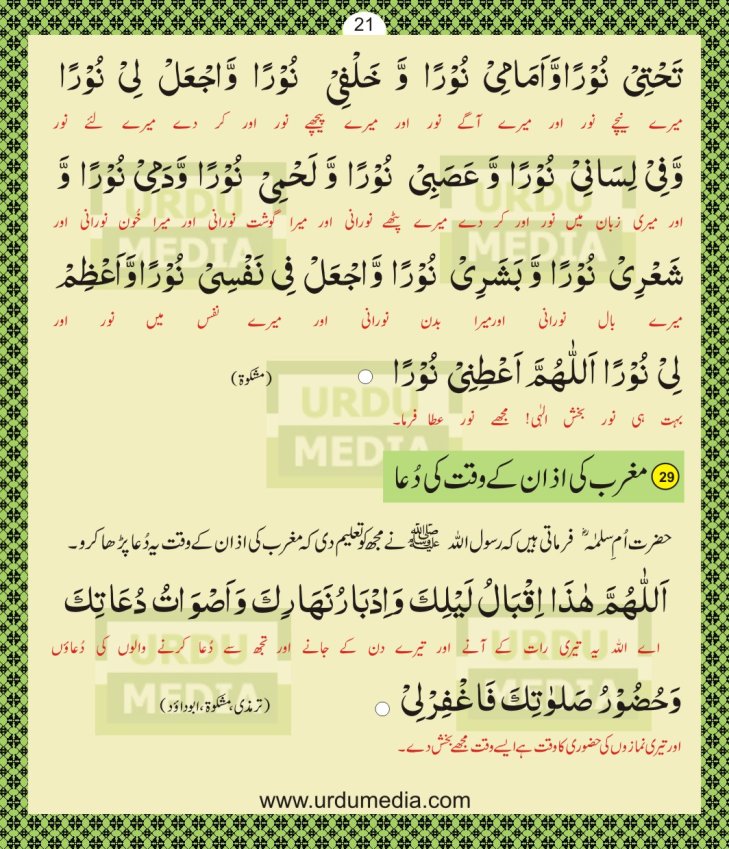 21
تَحْتِيْ نُوْرًا وَّاَمَامِيْ نُوْرًا وَّ خَلْفِيْ نُوْرًا وَّاجْعَلْ لِيْ نُوْرًا
میرے نیچے نور اور میرے آگے نور اور میرے پیچھے نور اور کر دے میرے لئے نور
وَّفِيْ لِسَانِيْ نُوْرًا وَّ عَصَبِيْ نُوْرًا وَّ لَحْمِيْ نُوْرًا وَّدَمِيْ نُوْرًا وَّ
اور میری زبان میں نور اور کر دے میرے پٹھے نورانی اور میرا گوشت نورانی اور میرا خُون نورانی اور
شَعْرِيْ نُوْرًا وَّ بَشَرِيْ نُوْرًا وَّاجْعَلْ فِي نَفْسِيْ نُوْرًا وَّاَعْظِمْ
میرے بال نورانی اورمیرا بدن نورانی اور میرے نفس میں نور اور
لِيْ نُوْرًا اَللّٰهُمَّ اَعْطِنِيْ نُوْرًا (مشکوٰة)
بہت ہی نور بخش الٰہی! مجھے نور عطا فرما۔
29 مغرب کی اذان کے وقت کی دُعا
حضرت اُم سلمٰہؓ فرماتی ہیں کہ رسول اللہ ﷺ نے مجھ کو تعلیم دی کہ مغرب کی اذان کے وقت یہ دُعا پڑھا کرو۔
اَللّٰهُمَّ هٰذَا اِقْبَالُ لَيْلِكَ وَاِدْبَارُ نَهَارِكَ وَاَصْوَاتُ دُعَاتِكَ
اے اللہ یہ تیری رات کے آنے اور تیرے دن کے جانے اور تجھ سے دُعا کرنے والوں کی دُعاؤں
وَحُضُوْرُ صَلٰوتِكَ فَاغْفِرْلِيْ (ترمذی، مشکوٰة، ابوداؤد)
اور تیری نمازوں کی حضوری کا وقت ہے ایسے وقت مجھے بخش دے۔
www.urdumedia.com
URDU
MEDIA
URDU
MEDIA
URDU
MEDIA
URDU
MEDIA
URDU
MEDIA